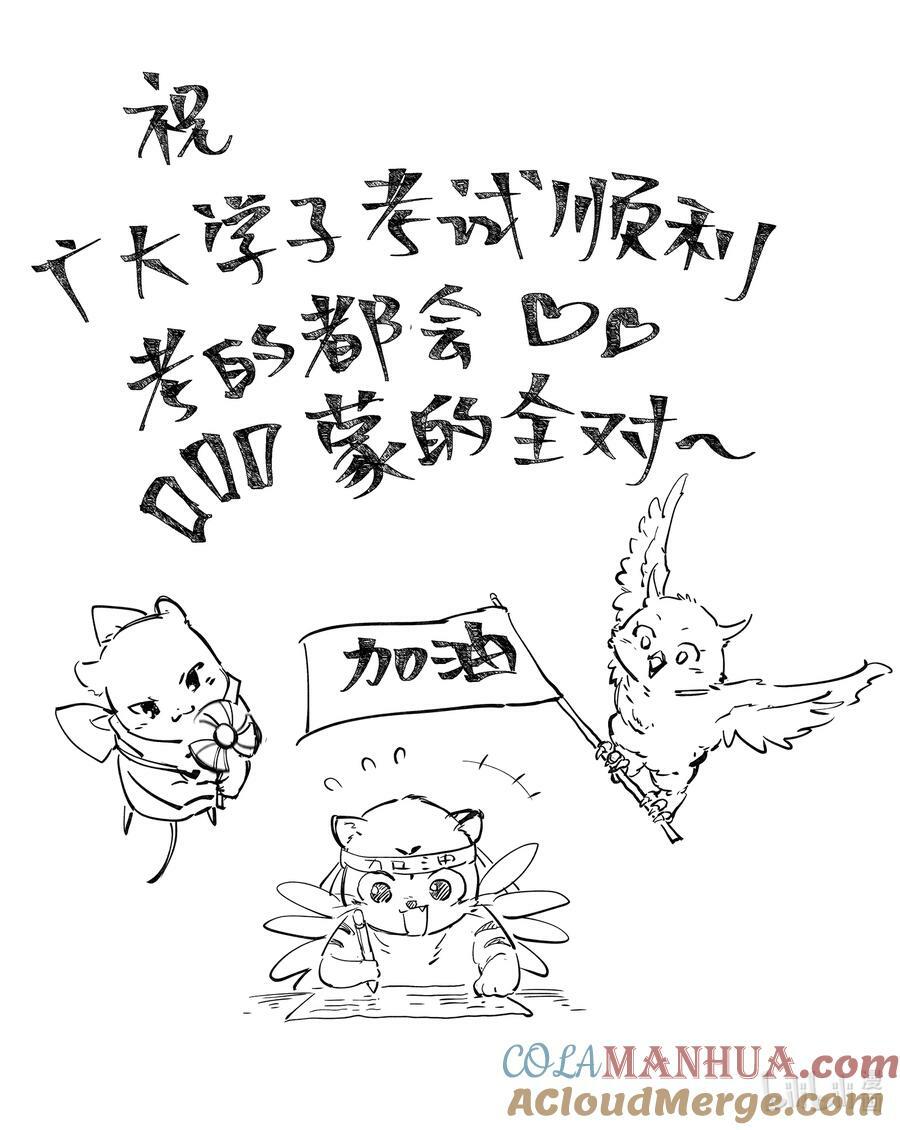 祝
广大学子考试顺利
考的都会
蒙的全对~
加油
加油
COLAMANHUA.com
ACloudMerge.com